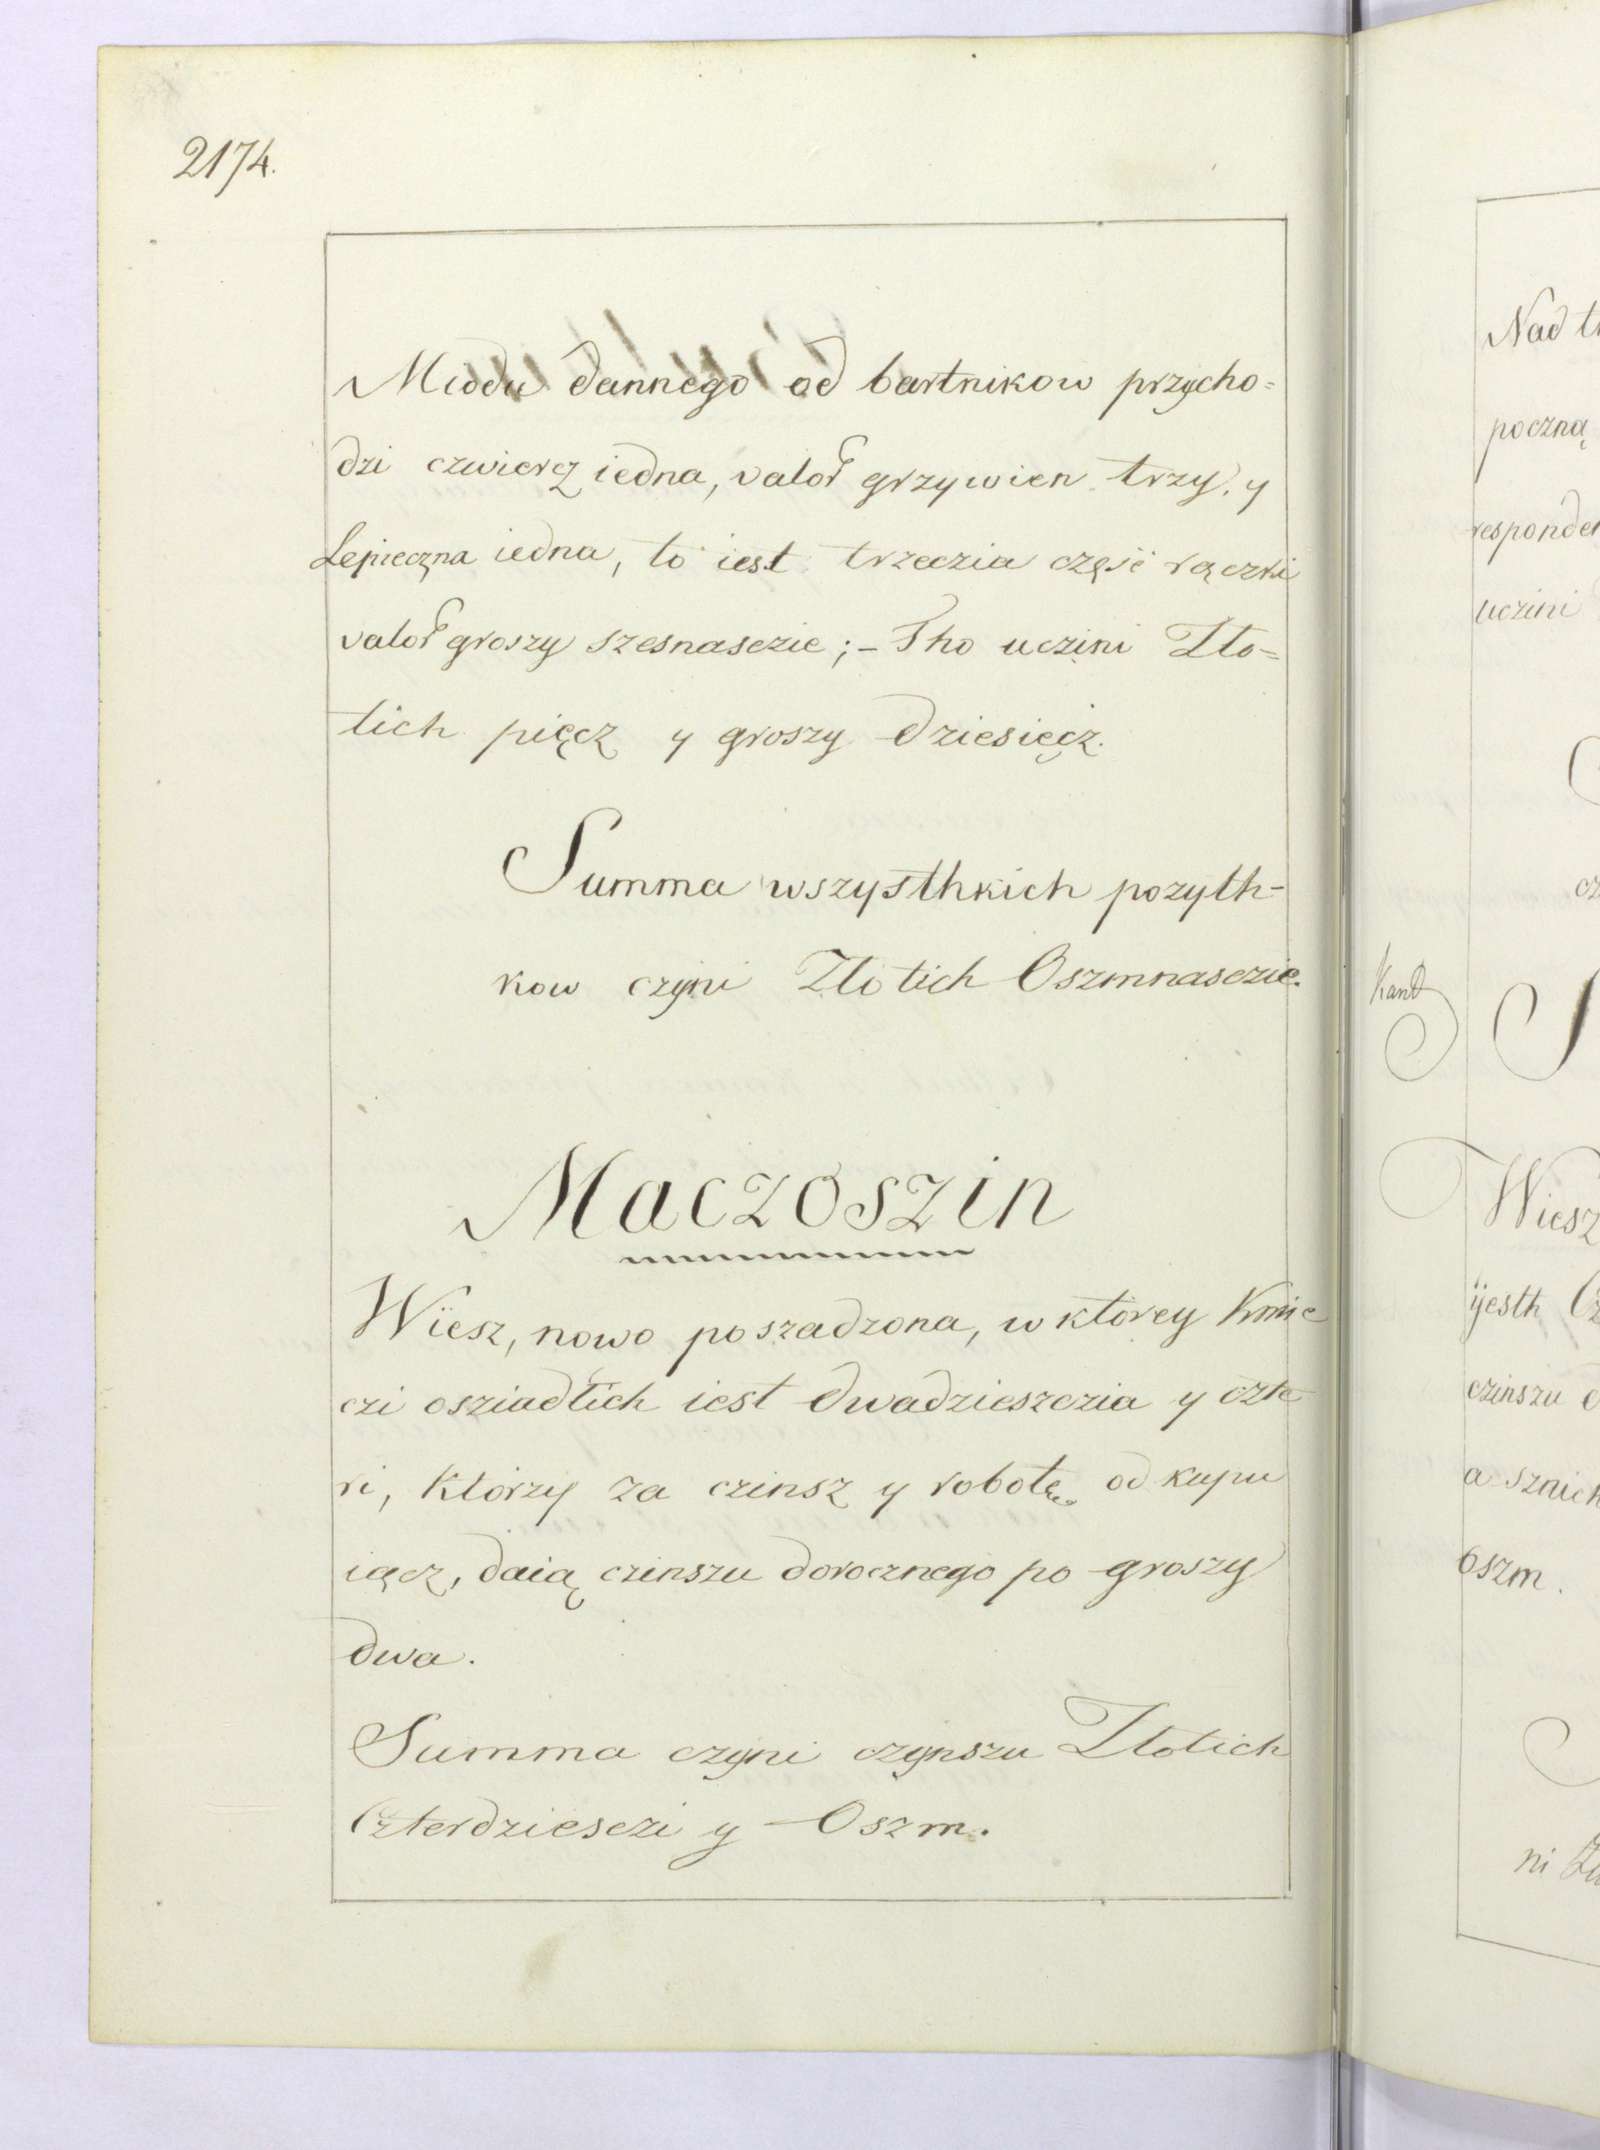 2174.
Miodu dannego od bartnikow przycho=
dzi czwiercz iedna, valor grzywien trzy, y
Lepieczna iedna, to iest trzeczia część rączki
valor groszy szesnasczie; – Tho uczini Zło=
tich pięcz y groszy dziesięcz.
Summa wszysthkich pozyth-
kow czyni Złotich Oszmnasczie.
Maczoszin
Wiesz, nowo poszadzona, w ktorey Kmie
czi osziadłich iest dwadzieszczia y czte
ri, Ktorzy za czinsz y robotę od kupu
iącz, daią czinszu dorocznego po groszy
dwa.
Summa czyni czynszu Złotich
Czterdziesczi y Oszm.
Nad
poczną
uczini
Kant
Wiesz
ÿesth
czinszu
a sznich
Oszm.
ni